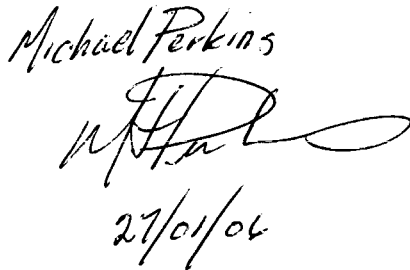 Michael Perkins
27/01/06